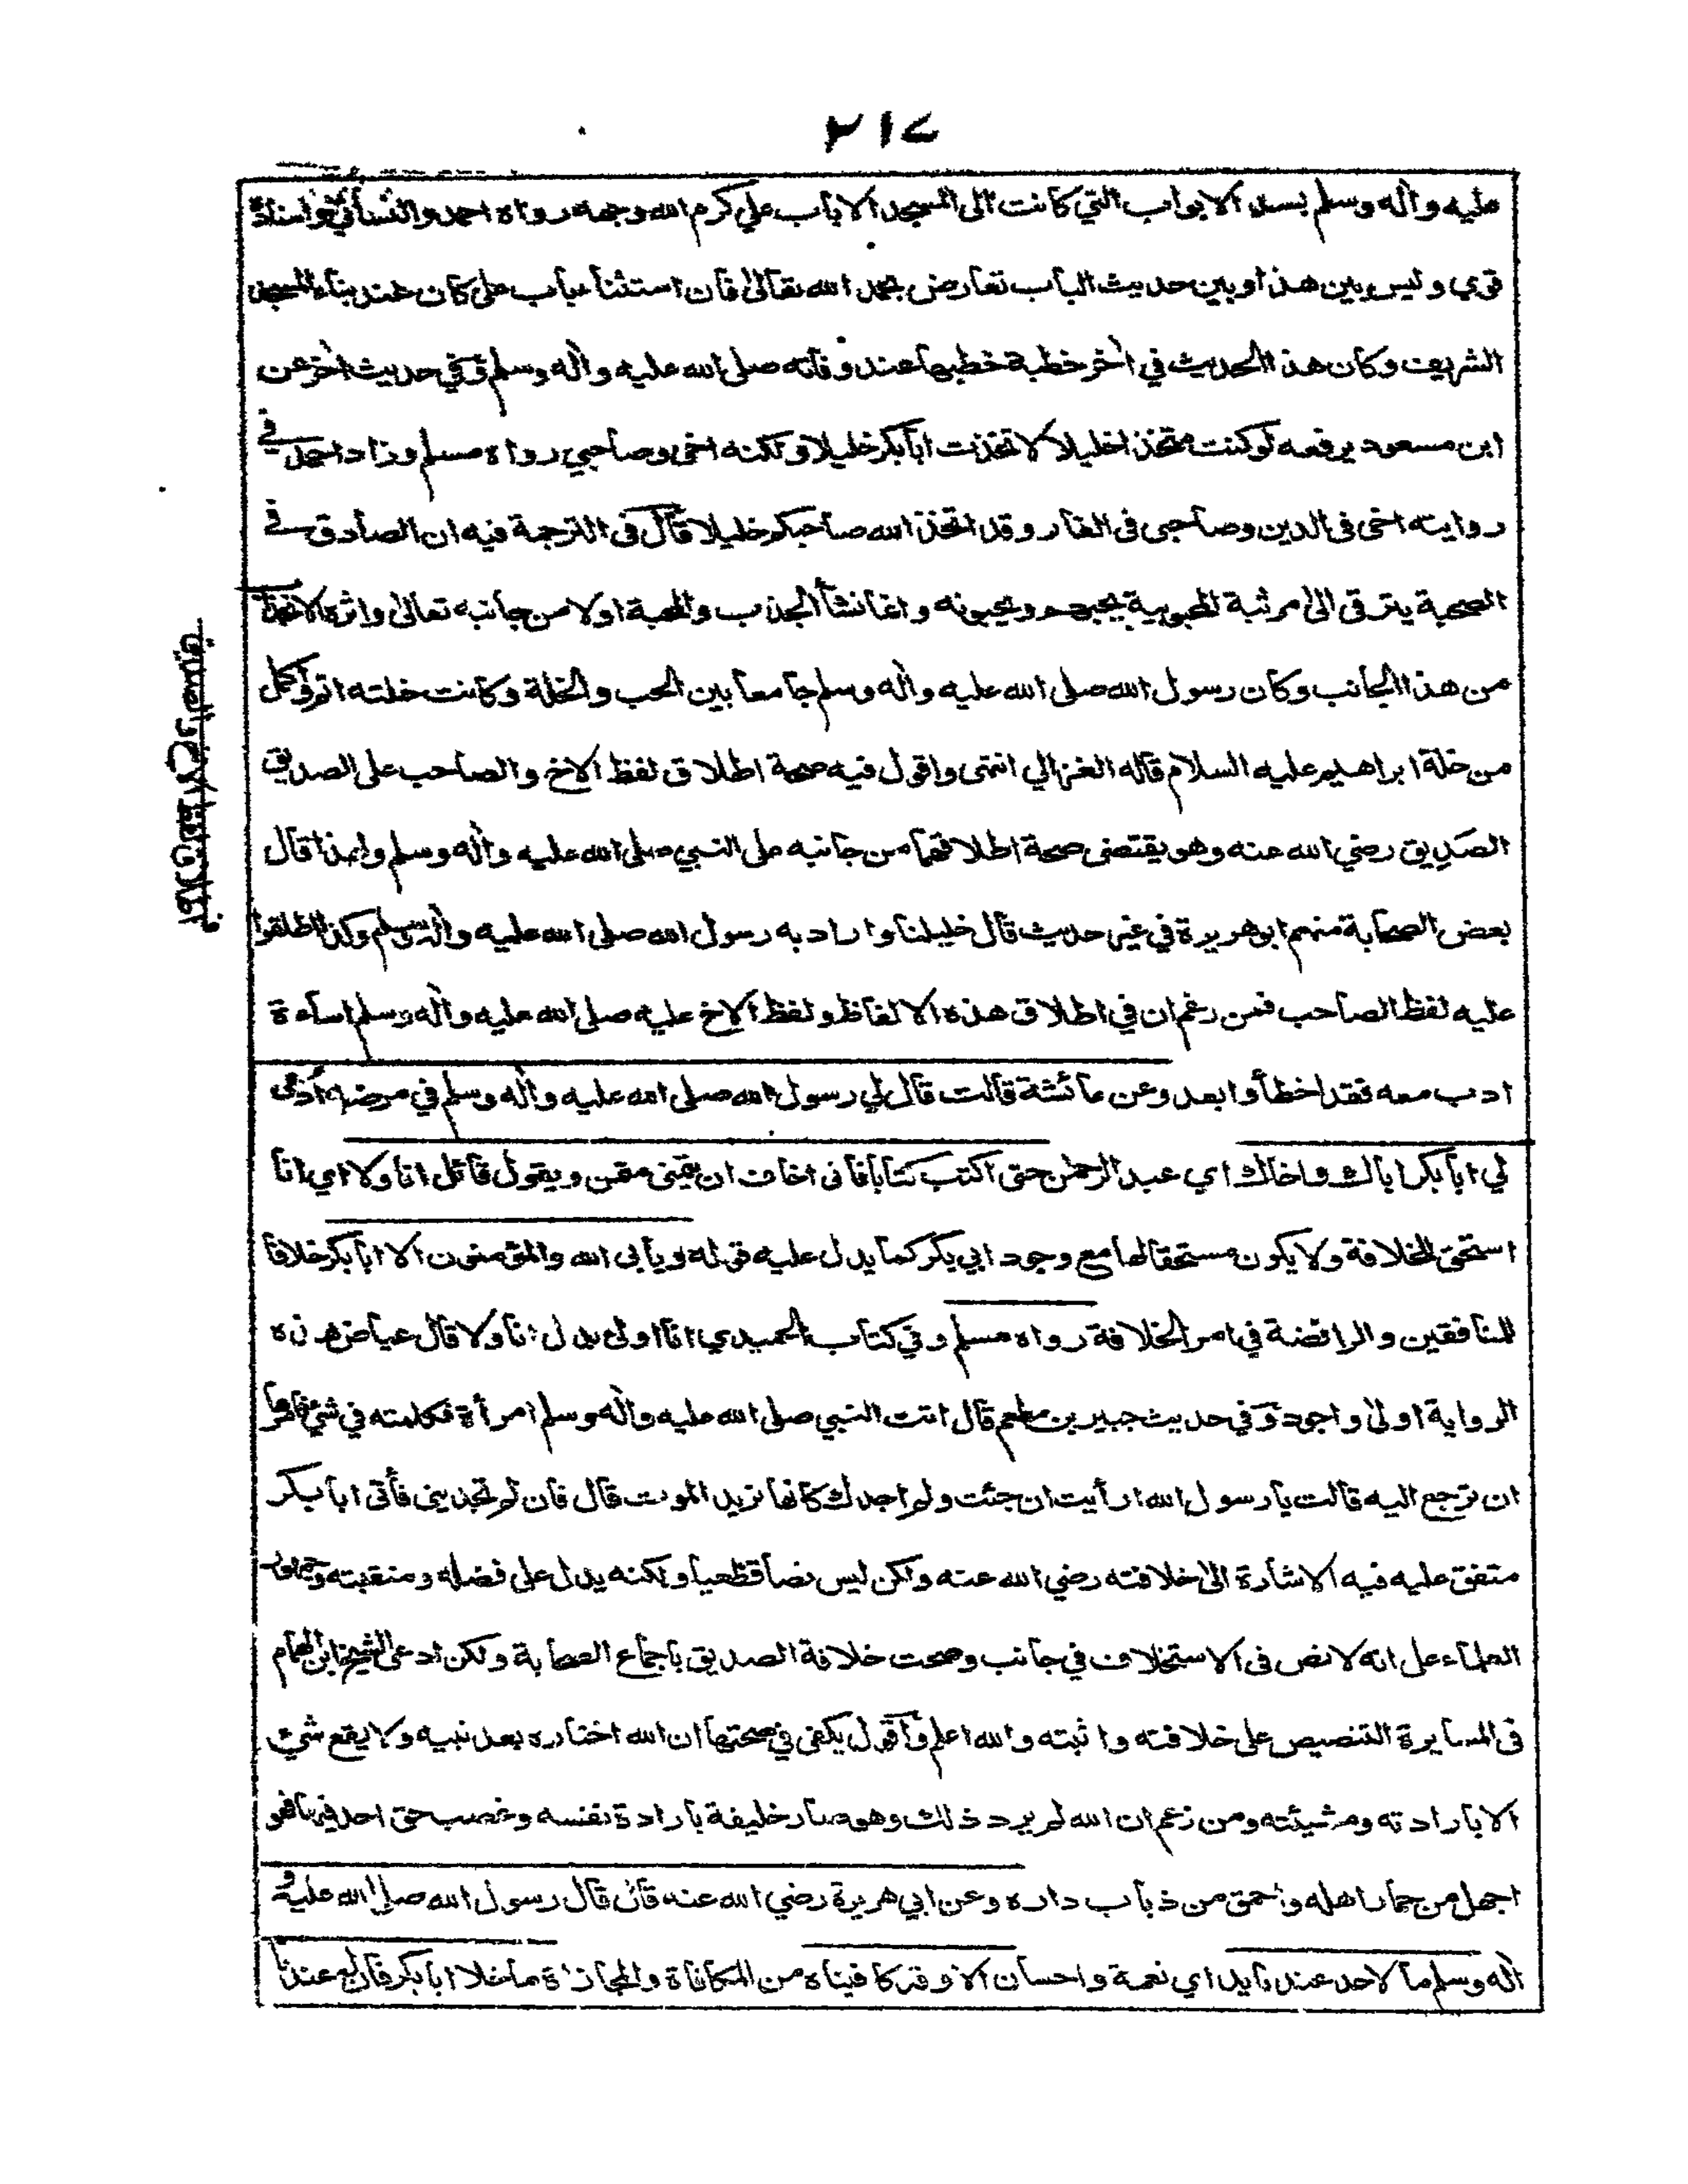 ٢١٧
عليه وآله وسلم بسد الابواب التي كانت الى المسجد الا باب علي كرم الله وجهه رواه احمد والنسائي واسناده
قوي وليس بين هذا وبين حديث الباب تعارض بحمد الله تعالى فان استثناء باب علي كان عند بناء المسجد
الشريف وكان هذا الحديث في آخر خطبة خطبها عند وفاته صلى الله عليه وآله وسلم وفي حديث اخر عن
ابن مسعود يرفعه لو كنت متخذا خليلا لاتخذت ابا بكر خليلا ولكنه اخي وصاحبي رواه مسلم وزاد احمد في
روايته اخي في الدين وصاحبي في الغار وقد اتخذ الله صاحبكم خليلا قال في الترجمة فيه ان الصادق في
الصحبة يترقى الى مرتبة المحبوبية يحبهم ويحبونه وانما نشأ الجذب والمحبة اولا من جانبه تعالى واثره الاتخاذ
من هذا الجانب وكان رسول الله صلى الله عليه وآله وسلم جامعا بين الحب والخلة وكانت خلته اتم واكمل
من خلة ابراهيم عليه السلام قاله الغزالي انتهى واقول فيه صحة اطلاق لفظ الاخ والصاحب على الصديق
الصديق رضي الله عنه وهو يقتضي صحة اطلاقهما من جانبه على النبي صلى الله عليه وآله وسلم ولهذا قال
بعض الصحابة منهم ابو هريرة في غير حديث قال خليلنا واراد به رسول الله صلى الله عليه وآله وسلم وكذا اطلقوا
عليه لفظ الصاحب فمن زعم ان في اطلاق هذه الالفاظ ولفظ الاخ عليه صلى الله عليه وآله وسلم اساءة
ادب معه فقد اخطأ وابعد وعن عائشة قالت قال لي رسول الله صلى الله عليه وآله وسلم في مرضه أدعى
لي ابا بكر اباك واخاك اي عبد الرحمن حتى اكتب كتابا فاني اخاف ان يتمنى متمن ويقول قائل انا ولا اي انا
استحق الخلافة ولا يكون مستحقا لها مع وجود ابي بكر كما يدل عليه قوله ويأبى الله والمؤمنون الا ابا بكر خلافا
للمنافقين والرافضة في امر الخلافة رواه مسلم وفي كتاب الحميدي انا اولى بدل انا ولا قال عياض هذه
الرواية اولى واجود وفي حديث جبير بن مطعم قال اتت النبي صلى الله عليه وآله وسلم امرأة فكلمته في شيء فامرها
ان ترجع اليه قالت يا رسول الله ارأيت ان جئت ولم اجدك كانها تريد الموت قال فان لم تجديني فأتى ابا بكر
متفق عليه فيه الاشارة الى خلافته رضي الله عنه ولكن ليس نصا قطعيا ولكنه يدل على فضله ومنقبته وجمهور
العلماء على انه لا نص في الاستخلاف في جانب وصحت خلافة الصديق باجماع الصحابة ولكن ادعى الشيخ ابن الهمام
في المسايرة التنصيص على خلافته واثبته والله اعلم وأقول يكفي في صحتها ان الله اختاره بعد نبيه ولا يقع شيء
الا بارادته ومشيئته ومن زعم ان الله لم يرد ذلك وهو صار خليفة بارادة نفسه وغصب حق احد فيها فهو
اجهل من حمار اهله واحمق من ذباب داره وعن ابي هريرة رضي الله عنه قال قال رسول الله صلى الله عليه و
آله وسلم ما لاحد عندنا يد اي نعمة واحسان الا وقد كافيناه من المكافاة والمجازاة ما خلا ابا بكر فان له عندنا